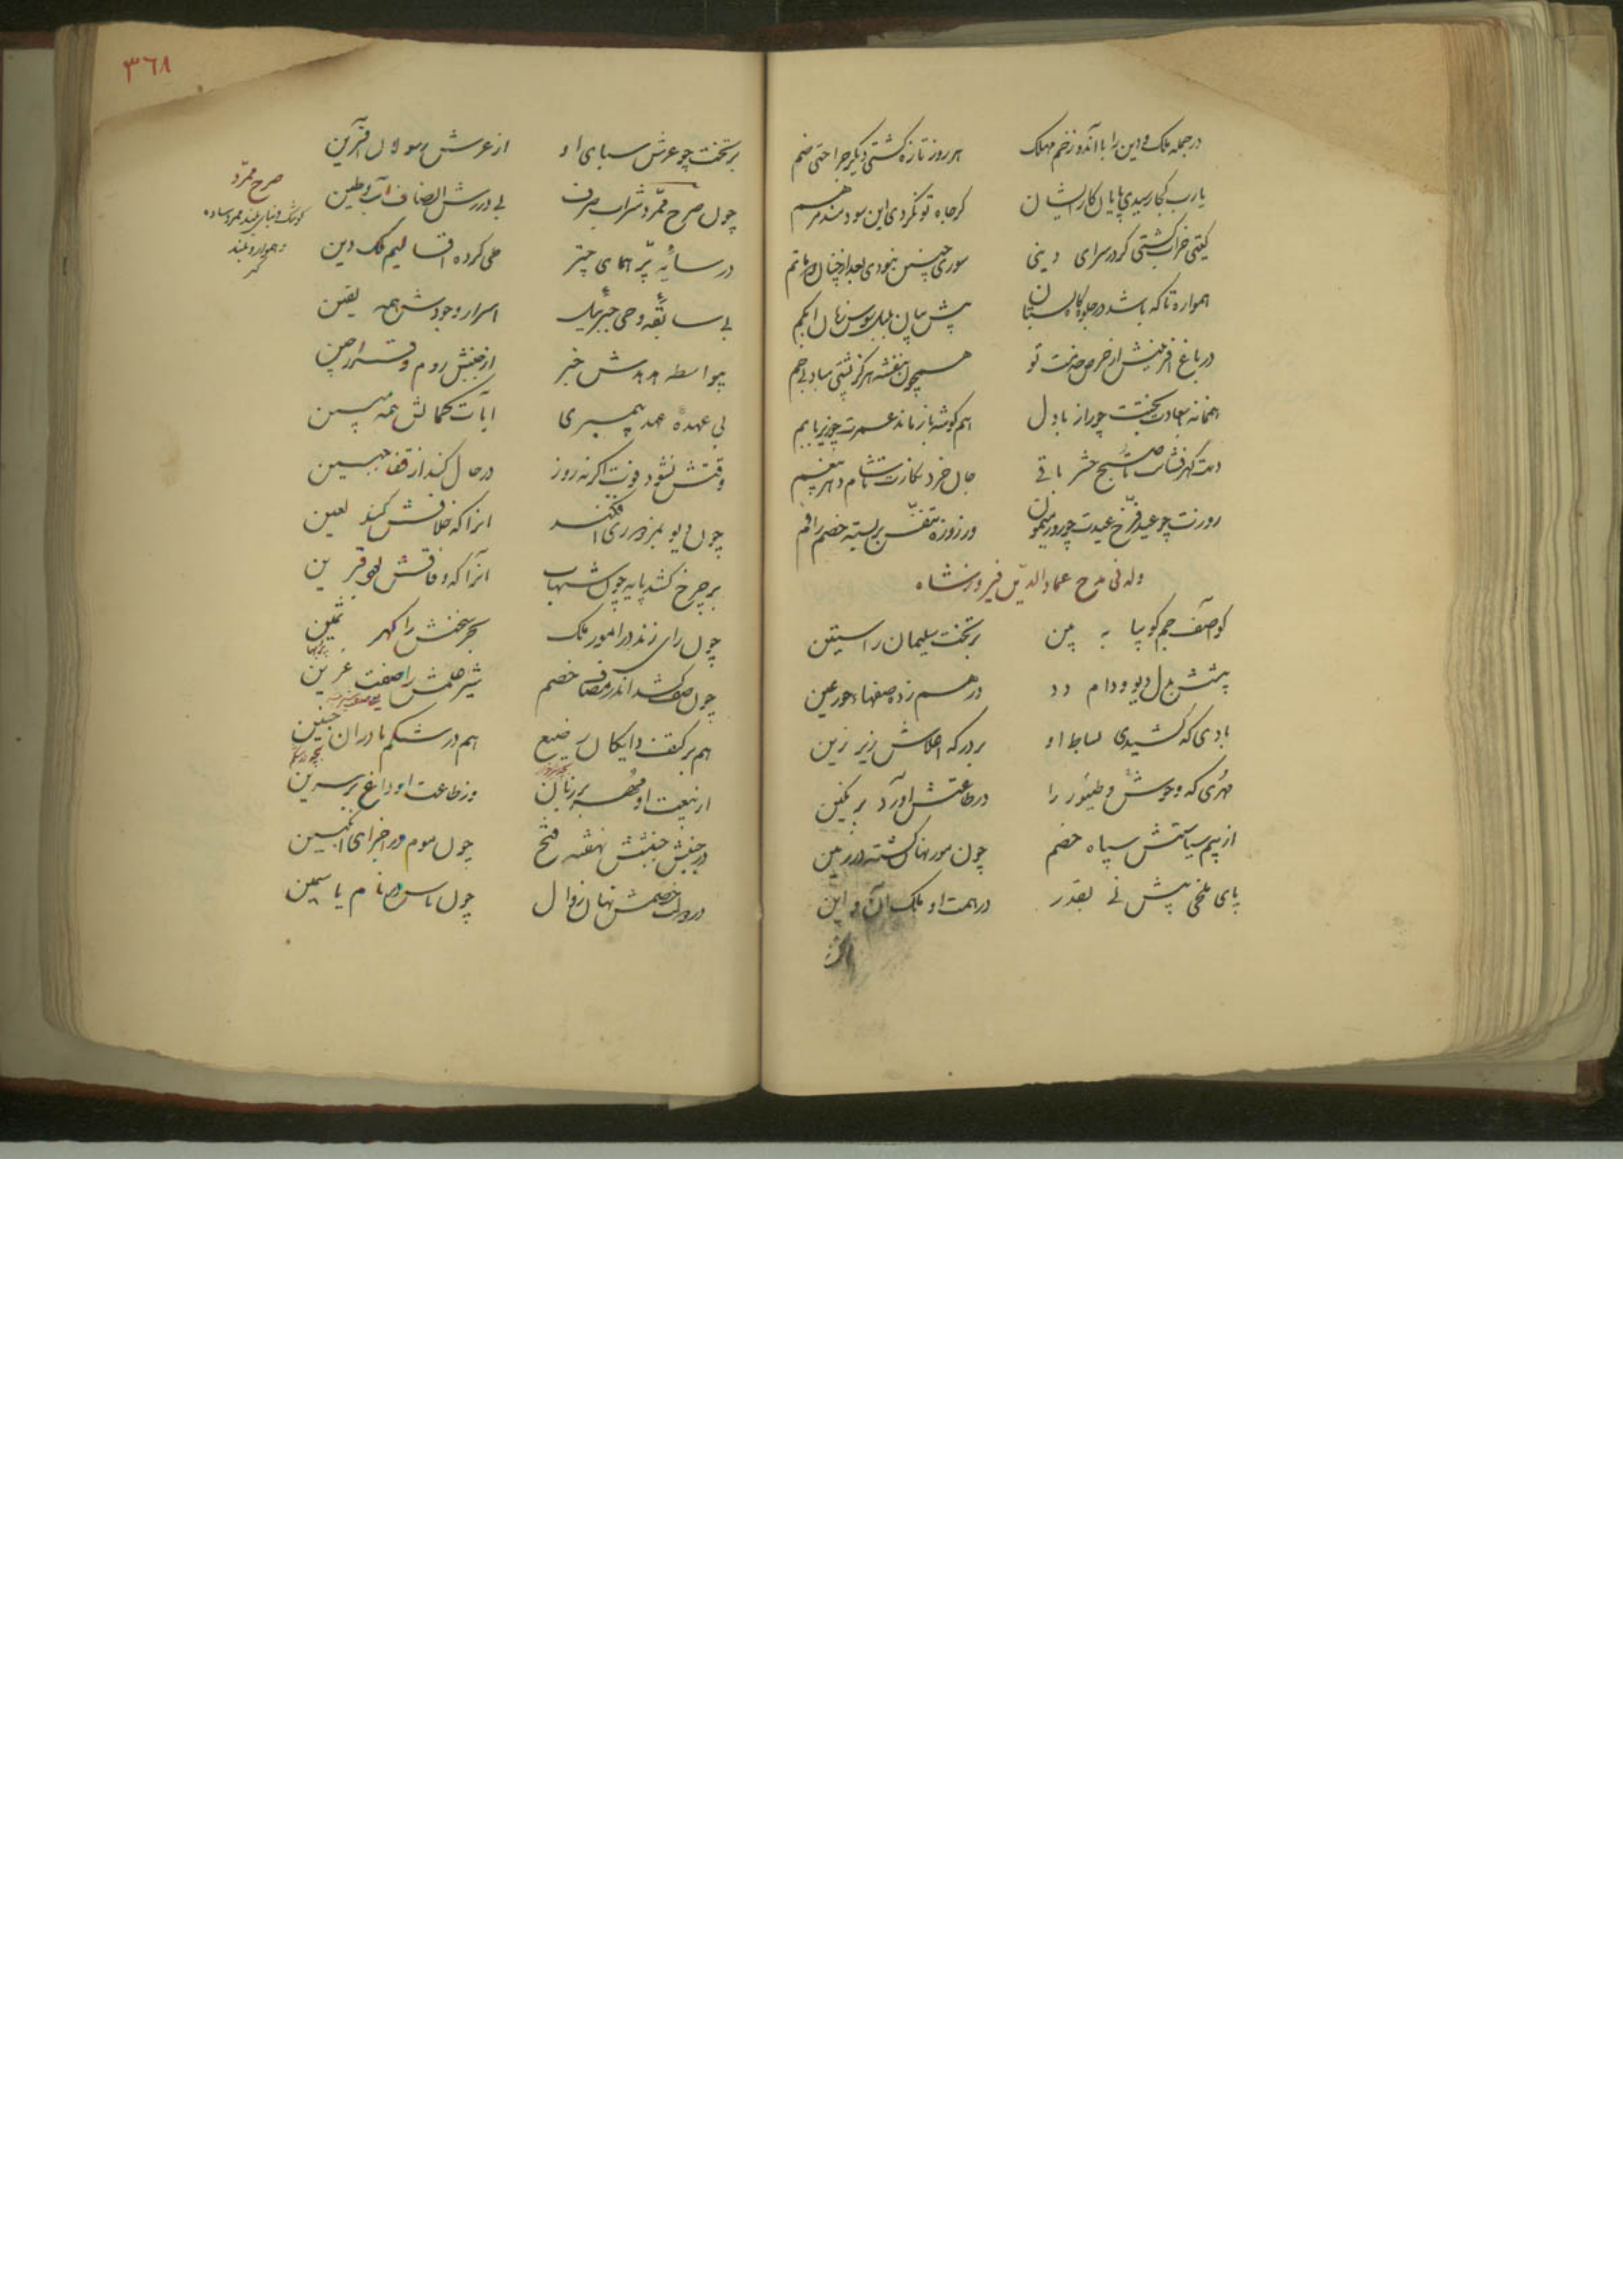 در جمله ملک و دین را با آنده زخم مهلک هر روز تازه گشتی دیگر جراحتی ضم
یارب کجا رسیدی پایان کار ایشان گر جاه تو نکردی این سودمند مرهم
گیتی خراب گشتی گر در سرای دینی سوری چنین نبودی بعد از چنان
همواره تا که باشد در جلوه گاه بستان پیش بلبل سوسن زبان ابکم
در باغ آفرینش از حرص خدمت تو همچون بنفشه هرگز پشتی مباد بی خم
بخت چو راز با دل هم گوشه باز مانده عمرت چو زیر با بم
دست گهرفشانت تا صبح حشر باقی جان خرد
روزت چو عید فرخ عیدت چو روز میمون وز روزه بربسته خصم را فم
وله فی مدح عماد الدین فیروزشاه
کو آصف جم گو بیا به بین بر تخت سلیمان راستین
پیشش بدل دیو و دام و دد درهم زده صفهاء حور عین
بادی که کشیدی بساط او بر درگه اعلاش زیر زین
مهری که وحوش و طیور را در طاعتش آورد بر نگین
از بیم سیاستش سپاه خصم چون مور نهان گشته در زمین
پای ملخی پیش نی بقدر در همت او ملک آن و این
بر تخت
۳۶۸
بر تخت چو عرش سبای او از عرش رسولان آفرین
چون صرح ممرد شراب صرف بی دردش انصاف آب و طین
صرح ممرد
در سایه پر همای چتر طی کرده اقالیم ملک دین
بی سابقه وحی جبرئیل اسرار وجودش همه یقین
بیواسطه هدهدش خبر از جنبش روم و قرار چین
بی عهده عهد پیمبری آیات کمالش همه مبین
وقتش نشود فوت اگر نه روز در حال کند از قفا جبین
چون دیو بمزدوری افکند آنرا که خلافش کند لعین
بر چرخ کشد پایه چون شهاب آنرا که وفاقش بود قرین
چون رای زند در امور ملک بحر سخنش را گهر ثمین
چون صف کشد اندر مصاف خصم شیر علمش را صفت عرین
هم بر کتف دایگان رضیع هم در شکم مادران جنین
از نبعت او مهر بر زبان وز طاعت او داغ بر سرین
در جنبش جیشش نهفته فتح چون موم در اجزای انگبین
در دولت خصمش نهان زوال چون یاس در نام یاسمین